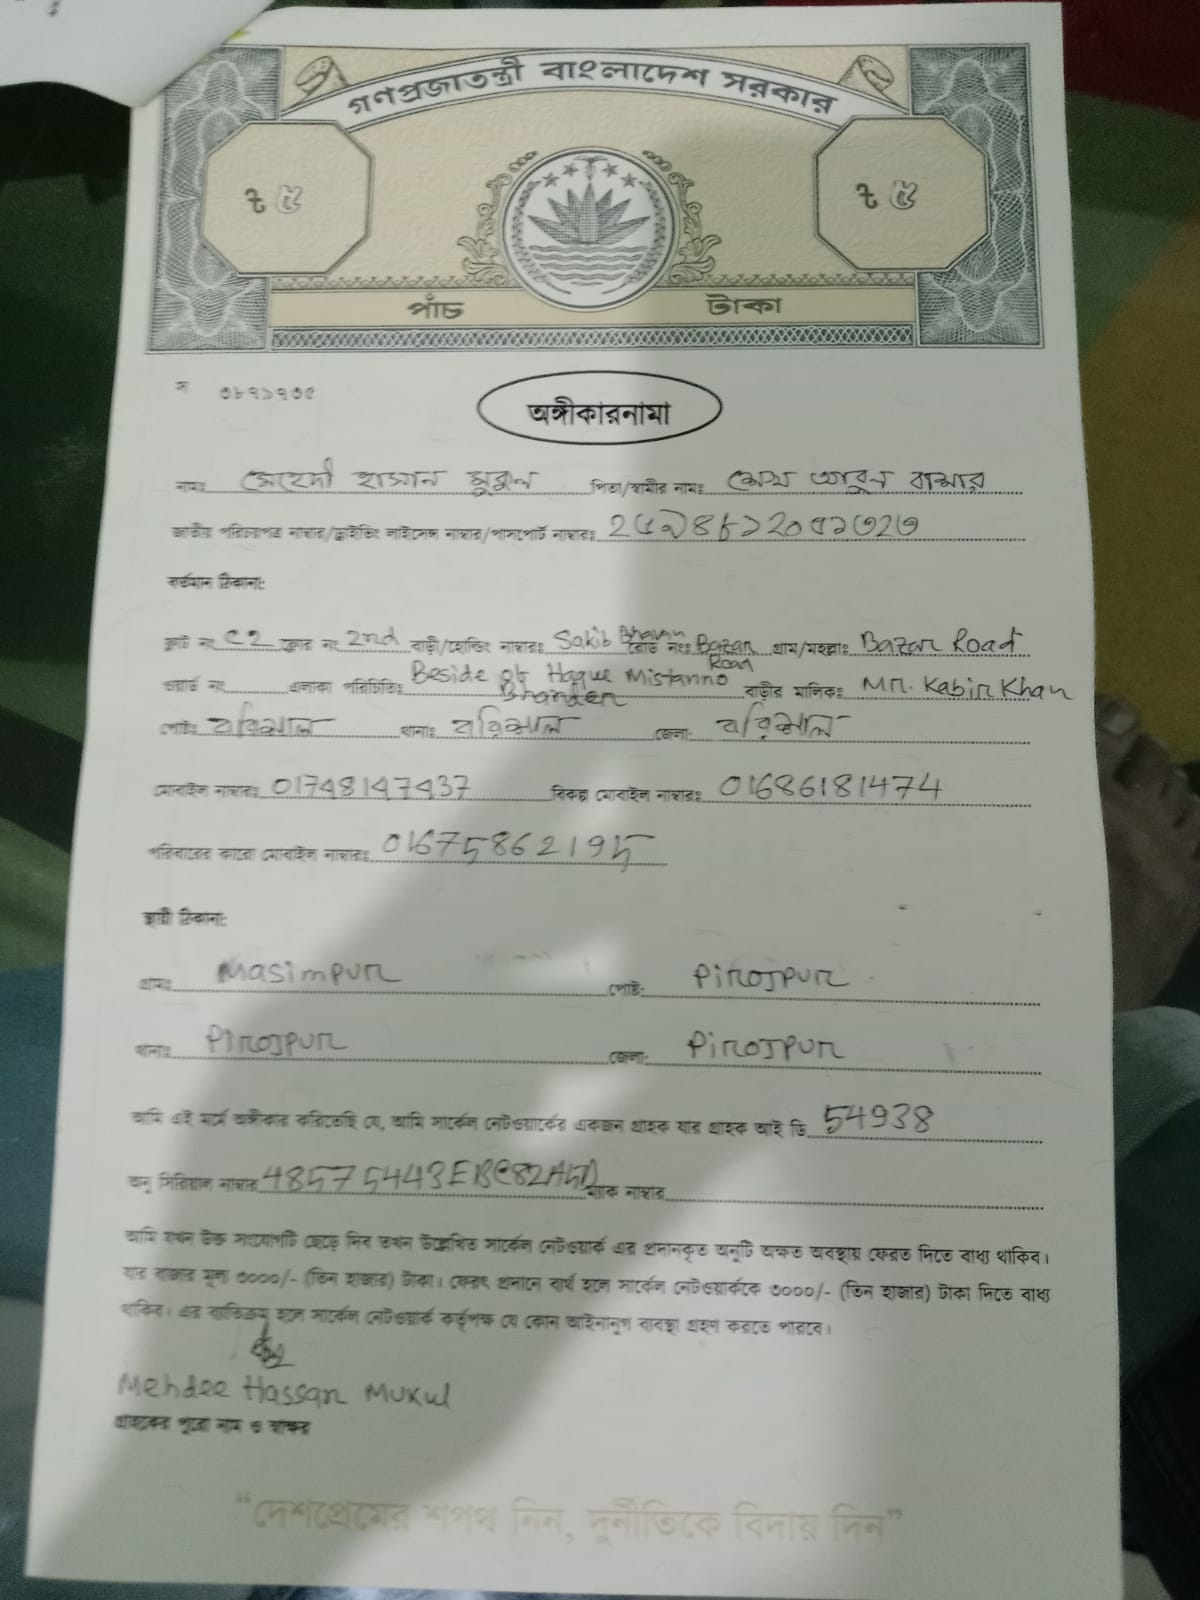 গণপ্রজাতন্ত্রী বাংলাদেশ সরকার
৳ ৫ ৳ ৫
পাঁচ টাকা
স ৩৮৭১৭৩৫
অঙ্গীকারনামা
নামঃ মেহেদী হাসান মুকুল পিতা/স্বামীর নামঃ শেখ আবুল বাসার
জাতীয় পরিচয়পত্র নাম্বার/ড্রাইভিং লাইসেন্স নাম্বার/পাসপোর্ট নাম্বারঃ
বর্তমান ঠিকানা:
ফ্লাট নং C2 ফ্লোর নং 2nd বাড়ী/হোল্ডিং নাম্বারঃ Sakib Bhavan রোড নংঃ Bazar Road গ্রাম/মহল্লাঃ Bazar Road
ওয়ার্ড নং এলাকা পরিচিতিঃ Beside of Haque Mistanno Bhander বাড়ীর মালিকঃ Mr. Kabir Khan
পোষ্টঃ বরিশাল থানাঃ বরিশাল জেলা: বরিশাল
মোবাইল নাম্বারঃ 01748147437 বিকল্প মোবাইল নাম্বারঃ 01686181474
পরিবারের কারো মোবাইল নাম্বারঃ 01675862195
স্থায়ী ঠিকানা:
গ্রামঃ Masimpur পোষ্ট: Pirojpur
থানাঃ Pirojpur জেলা: Pirojpur
আমি এই মর্মে অঙ্গীকার করিতেছি যে, আমি সার্কেল নেটওয়ার্কের একজন গ্রাহক যার গ্রাহক আই ডি 54938
অনু সিরিয়াল নাম্বার 48575443EBC82A5D ম্যাক নাম্বার
আমি যখন উক্ত সংযোগটি ছেড়ে দিব তখন উল্লেখিত সার্কেল নেটওয়ার্ক এর প্রদানকৃত অনুটি অক্ষত অবস্থায় ফেরত দিতে বাধ্য থাকিব।
যার বাজার মূল্য ৩০০০/- (তিন হাজার) টাকা। ফেরৎ প্রদানে ব্যর্থ হলে সার্কেল নেটওয়ার্ককে ৩০০০/- (তিন হাজার) টাকা দিতে বাধ্য
থাকিব। এর ব্যতিক্রম হলে সার্কেল নেটওয়ার্ক কর্তৃপক্ষ যে কোন আইনানুগ ব্যবস্থা গ্রহণ করতে পারবে।
Mehdee Hassan Mukul
গ্রাহকের পুরো নাম ও স্বাক্ষর
“দেশপ্রেমের শপথ নিন, দুর্নীতিকে বিদায় দিন”